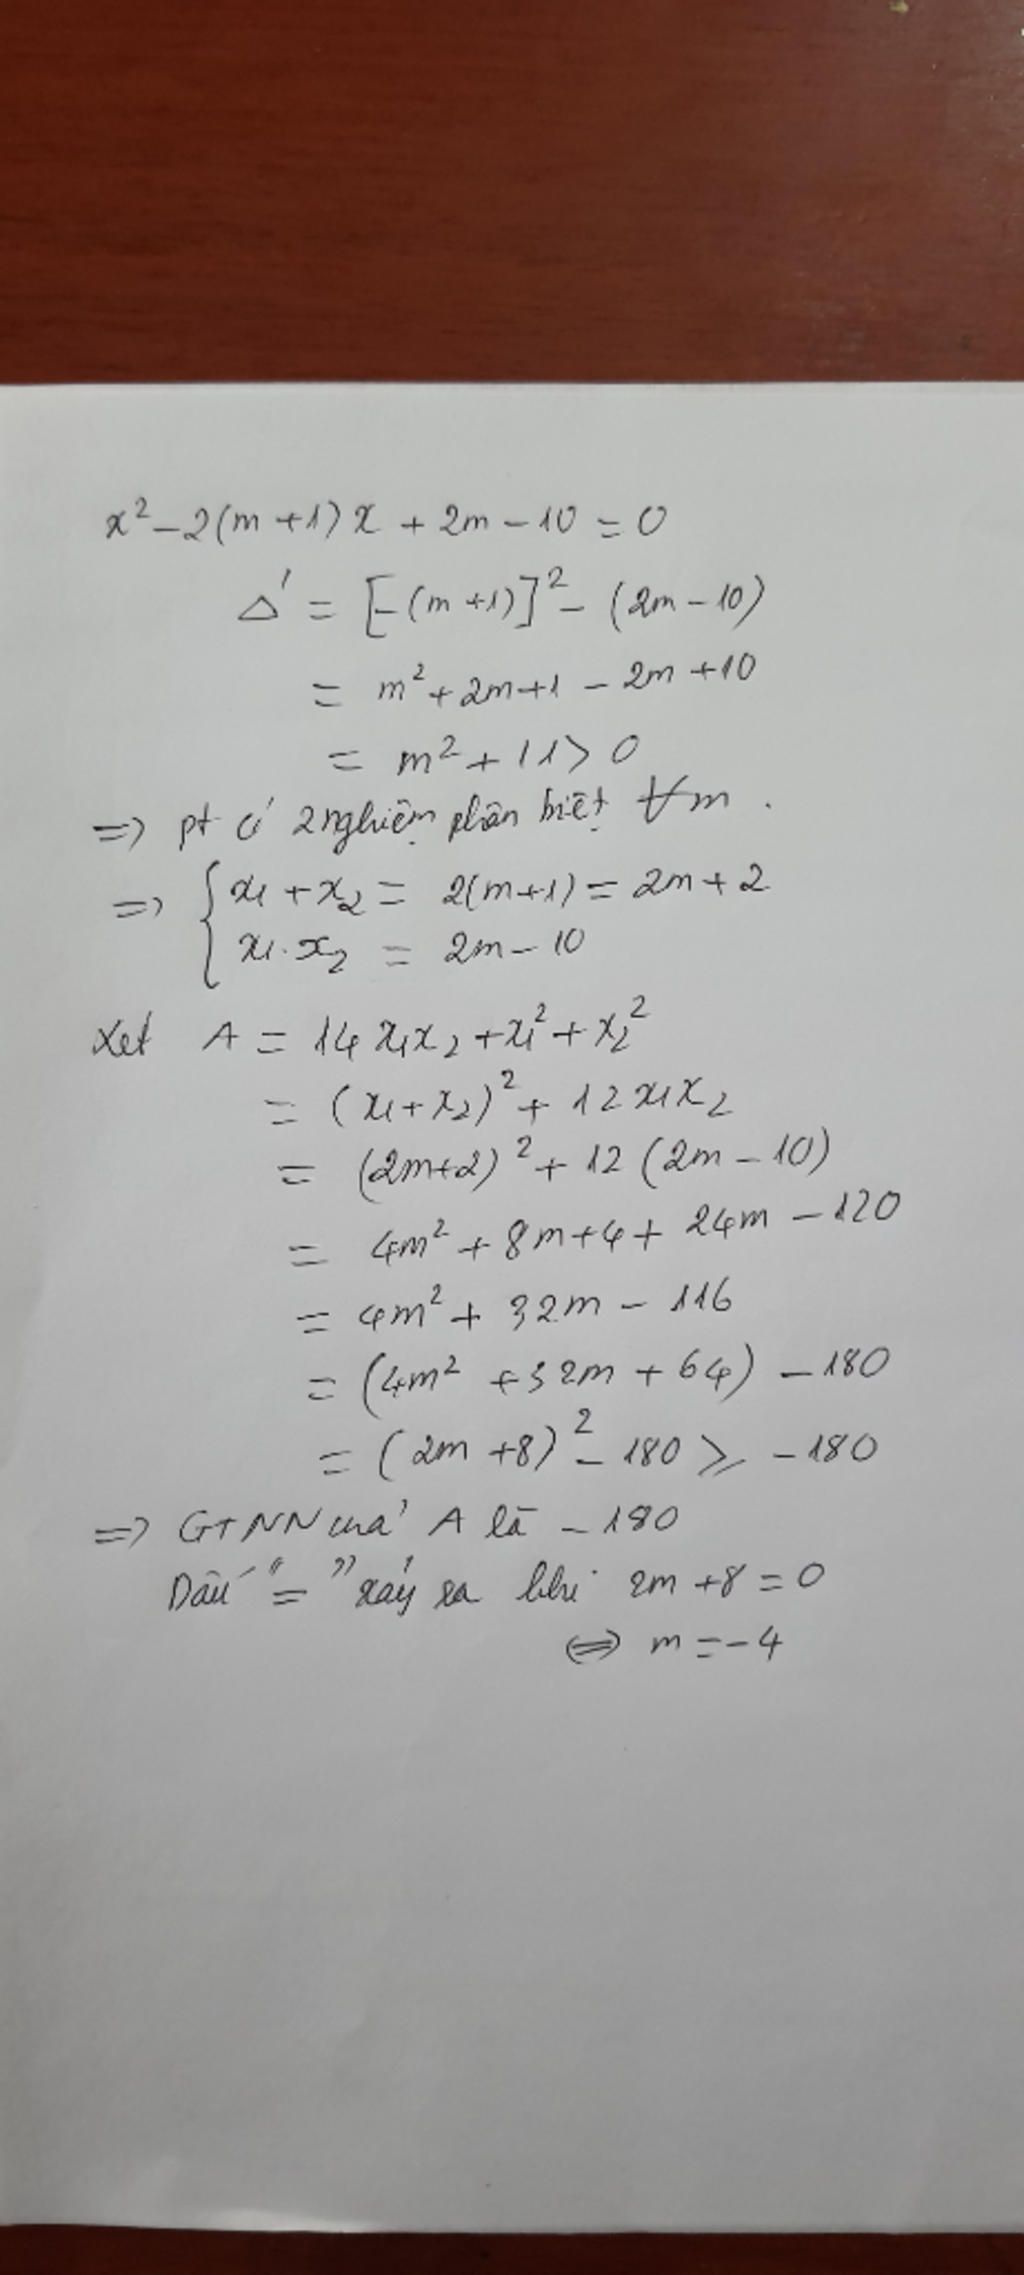 x² - 2(m+1)x + 2m - 10 = 0
Δ' = [-(m+1)]² - (2m - 10)
= m² + 2m + 1 - 2m + 10
= m² + 11 > 0
=> pt có 2 nghiệm phân biệt ∀m.
=> { x₁ + x₂ = 2(m+1) = 2m + 2
x₁.x₂ = 2m - 10
Xét A = 14x₁x₂ + x₁² + x₂²
= (x₁ + x₂)² + 12x₁x₂
= (2m+2)² + 12(2m - 10)
= 4m² + 8m + 4 + 24m - 120
= 4m² + 32m - 116
= (4m² + 32m + 64) - 180
= (2m + 8)² - 180 ⩾ - 180
=> GTNN của A là - 180
Dấu "=" xảy ra khi 2m + 8 = 0
⇔ m = -4